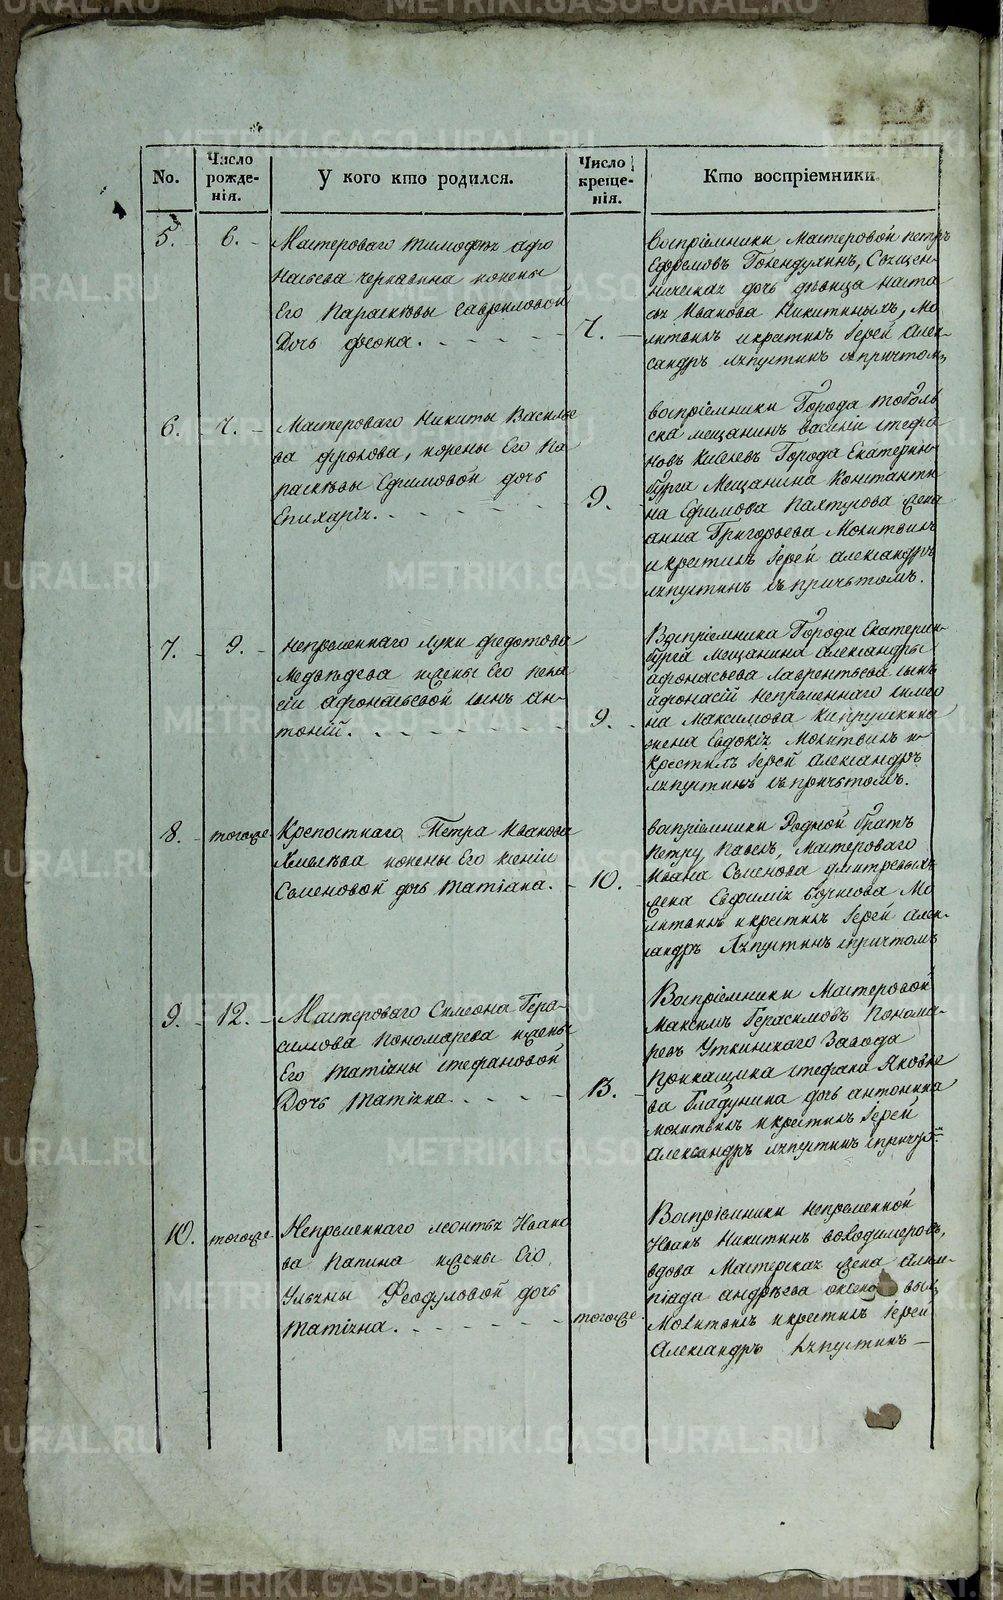 No.
Число рожде-нія.
У кого кто родился.
Число креще-нія.
Кто воспріемники.
5.
6.
Мастероваго Тимофея Афо
насьева жены
Его Параскевы Гавриловой
Дочь
7.
воспріемники Мастеровой петръ
Ефремовъ Священ-
ническая дочь девица Наста
Иванова Никитиныхъ, Мо
литвилъ и крестилъ Іерей Алек-
сандръ Ляпустинъ спричтомъ
6.
7.
Мастероваго Никиты Василье
ва фролова, жены Его Па
раскевы Ефимовой дочь
Епихарія.
9.
воспріемники Города тоболь
ска мещанинъ василіи стефа
новъ Киселевъ Города Екатерин-
бурга Мещанина Константи
на Ефимова жена
анна Григорьева Молитвилъ
и крестилъ Іерей александръ
ляпустинъ съ причьтомъ.
7.
9.
непременнаго луки федотова
медведева жены Его
афонасьевой сынъ ан-
тоній.
9.
Воспріемника Города Екатерин-
бурга Мещанина Александры
афонасьева Лаврентьева сынъ
афонасій непременнаго симео
на Максимова
жена Евдокія Молитвилъ и
Крестилъ Іерей Александръ
ляпустинъ съ причьтомъ.
8.
тогоже
Крепостнаго Петра Иванова
жены Его
Семеновой дочь татіана.
10.
воспріемники Родной братъ
Петру, Павелъ, Мастероваго
Ивана Семенова
жена Евфимія Мо
литвилъ и крестилъ Іерей алек-
сандръ Ляпустинъ спричтомъ
9.
12.
Мастероваго Симеона Гера-
симова Пономарева жены
Его татіаны стефановой
Дочь татіяна.
13.
Воспріемники Мастеровой
Максимъ Герасимовъ Понома-
ревъ Уткинскаго Завода
Прикащика стефана Яковле
ва дочь антонина
молитвилъ и крестилъ Іерей
Александръ ляпустинъ
10.
тогоже
Непременнаго леонтья Ивано
ва Папина жены Его,
Ульяны Феофиловой дочь
татіяна.
тогоже
Воспріемники непременной
Иванъ Никитинъ володимеровъ,
вдова Мастерская жена Алим-
піада андреева
Молитвилъ и крестилъ Іерей
Александръ Ляпустинъ
METRIKI.GASO-URAL.RU